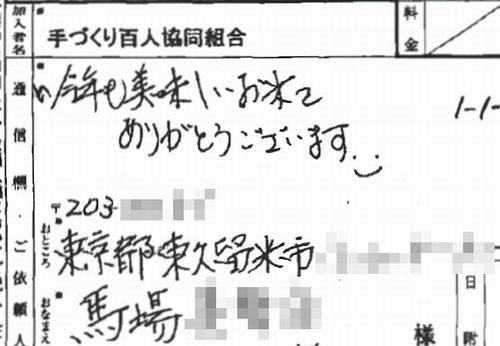 加入者名
手づくり百人協同組合
料金
通信欄・ご依頼人
今年も美味しいお米を
ありがとうございます
〒203-
おところ
東京都東久留米市
おなまえ
馬場
様
日附
1-1-